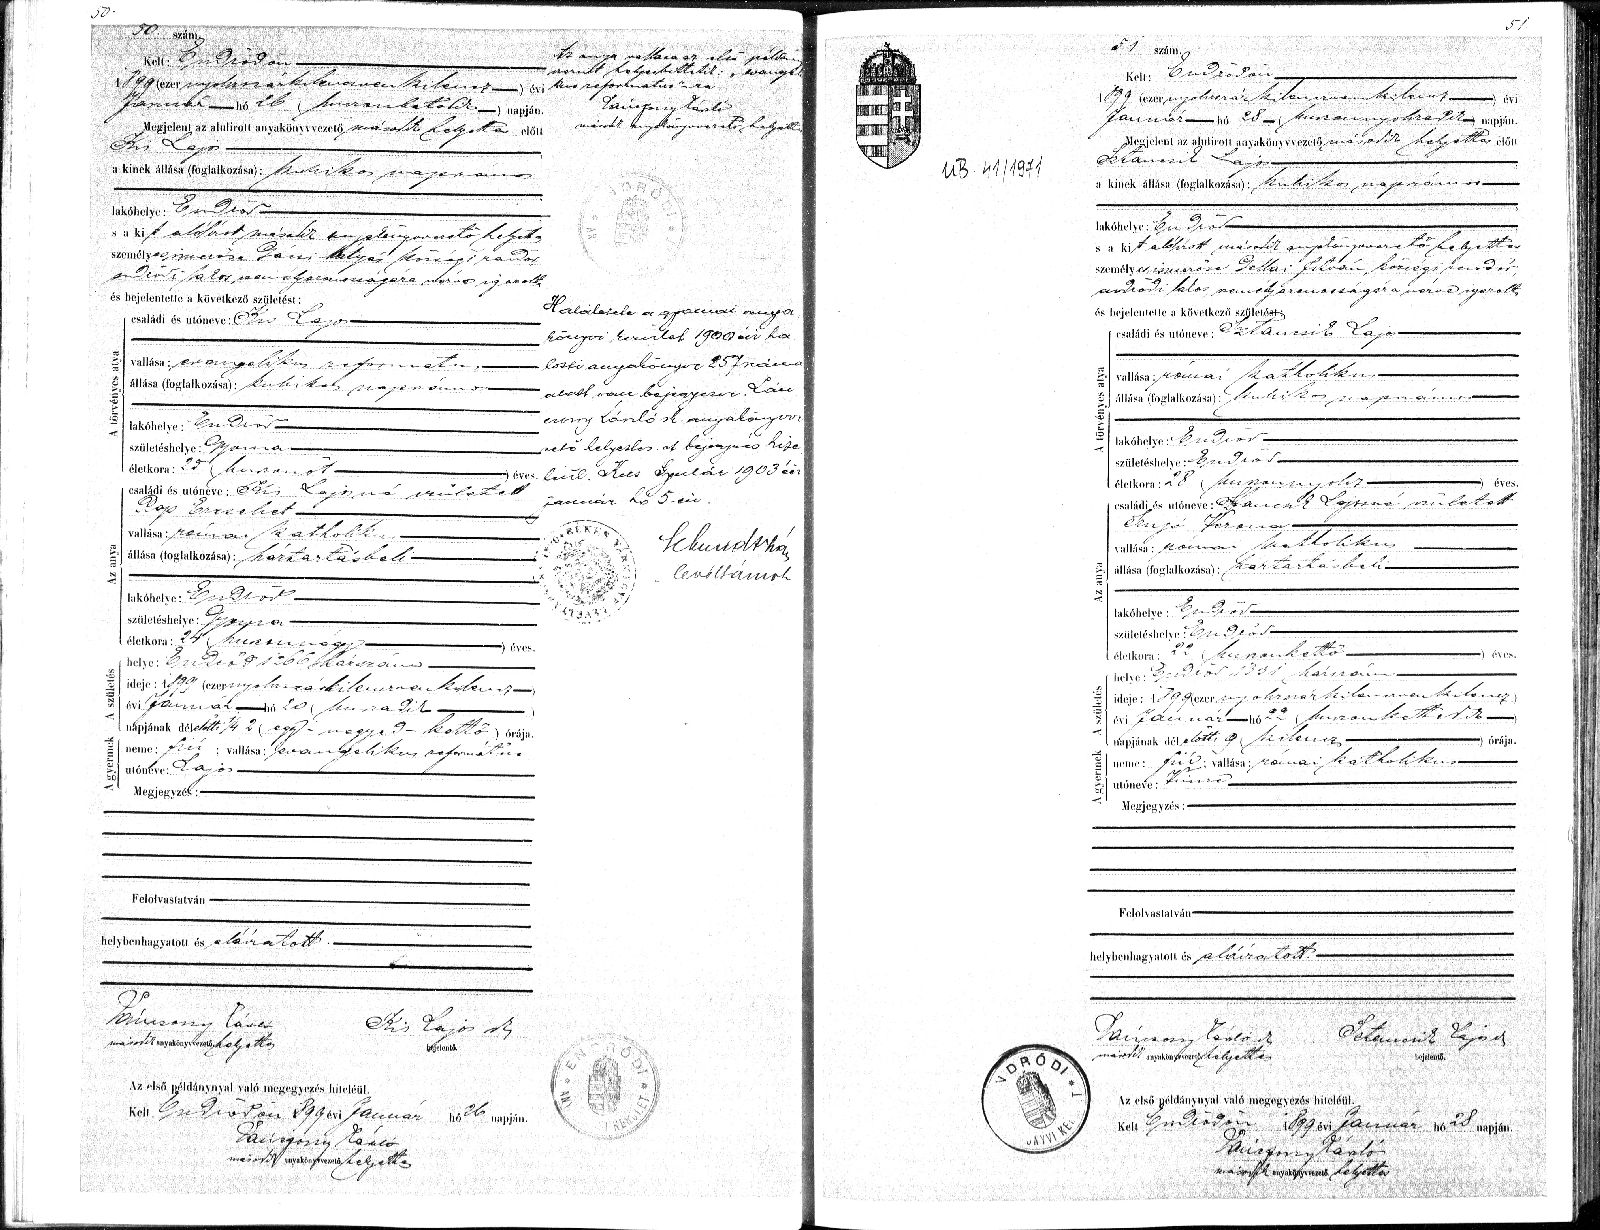 50.
50 szám.
Kelt: Endrődön
1899 (ezernyolcszázkilencvenkilenc) évi
Január hó 26 (huszonhatodik) napján.
Megjelent az alulirott anyakönyvvezető második helyettes előtt
Kis Lajos
a kinek állása (foglalkozása): kubikos napszámos
lakóhelye: Endrőd
s a kit alólirt második anyakönyvvezető helyettes
személyes
endrődi lakos,
és bejelentette a következő születést:
A törvényes atya
családi és utóneve: Kis Lajos
vallása: evangelikus református
állása (foglalkozása): kubikos napszámos
lakóhelye: Endrőd
születéshelye: Gyoma
életkora: 25 (huszonöt) éves.
Az anya
családi és utóneve: Kis Lajosné született
Pap Erzsébet
vallása: római katholikus
állása (foglalkozása): háztartásbeli
lakóhelye: Endrőd
születéshelye: Gyoma
életkora: 24 (huszonnégy) éves.
A születés
helye: Endrőd 1266 házszám
ideje: 1899 (ezernyolcszázkilencvenkilenc)
évi Január hó 20 (huszadik)
napjának délelőtti 1/4 2 (egy-negyed-kettő) órája.
A gyermek
neme: fiú; vallása: evangelikus református
utóneve: Lajos
Megjegyzés:
Felolvastatván
helybenhagyatott és aláiratott.
Kis Lajos sk
második anyakönyvvezető helyettes
bejelentő.
Az első példánynyal való megegyezés hiteléül.
Kelt Endrődön 1899 évi Január hó 26 napján.
második anyakönyvvezető helyettes
Az anya vallása az első példányban
helyesbittetik: "evangeli
kus református"-ra
második anyakönyvvezető helyettes
Halálesete a gyomai anya
könyvi kerület 1900 évi ha
lotti anyakönyve 257 szám
alatt van bejegyezve.
László sk. anyakönyvve
zető helyettes. A bejegyzés hite
léül. Kelt Gyulán 1903 évi
január hó 5-én.
levéltárnok
ENDRŐDI
51
51 szám.
Kelt: Endrődön
1899 (ezernyolcszázkilencvenkilenc) évi
Január hó 28 (huszonnyolcadik) napján.
Megjelent az alulirott anyakönyvvezető második helyettes előtt
Sztancsik Lajos
a kinek állása (foglalkozása): kubikos napszámos
lakóhelye: Endrőd
s a kit alólirott második anyakönyvvezető helyettes
személyes ismerőse Dellai István községi rendőr,
endrődi lakos
és bejelentette a következő születést:
A törvényes atya
családi és utóneve: Sztancsik Lajos
vallása: római katholikus
állása (foglalkozása): kubikos napszámos
lakóhelye: Endrőd
születéshelye: Endrőd
életkora: 28 (huszonnyolc) éves.
Az anya
családi és utóneve: Sztancsik Lajosné született
vallása: római katholikus
állása (foglalkozása): háztartásbeli
lakóhelye: Endrőd
születéshelye: Endrőd
életkora: 22 (huszonkettő) éves.
A születés
helye: Endrőd 1331 házszám
ideje: 1899 (ezernyolcszázkilencvenkilenc)
évi Január hó 22 (huszonkettedik)
napjának délelőtti 9 (kilenc) órája.
A gyermek
neme: fiú; vallása: római katholikus
utóneve:
Megjegyzés:
Felolvastatván
helybenhagyatott és aláiratott.
Sztancsik Lajos sk
második anyakönyvvezető helyettes
bejelentő.
Az első példánynyal való megegyezés hiteléül.
Kelt Endrődön 1899 évi Január hó 28 napján.
második anyakönyvvezető helyettes
UB. 41/1971